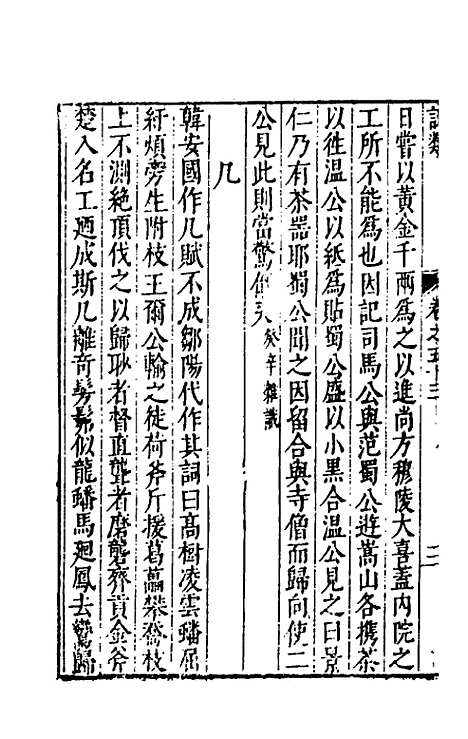 日嘗以黃金千兩為之以進尚方穆陵大喜蓋內院之
工所不能為也因記司馬公與范蜀公遊嵩山各攜茶
以往溫公以紙為貼蜀公盛以小黑合溫公見之曰景
仁乃有茶器耶蜀公聞之因留合與寺僧而歸向使二
公見此則當驚倒矣 癸辛雜識
几
韓安國作几賦不成鄒陽代作其詞曰高樹凌雲蟠屈
紆煩旁生附枝王爾公輸之徒荷斧斤援葛藟攀喬枝
上不測絕頂伐之以歸耿者督直聾者磨礱齊貢金斧
楚入名工迺成斯几離奇髣髴似龍蟠馬迴鳳去鸞歸